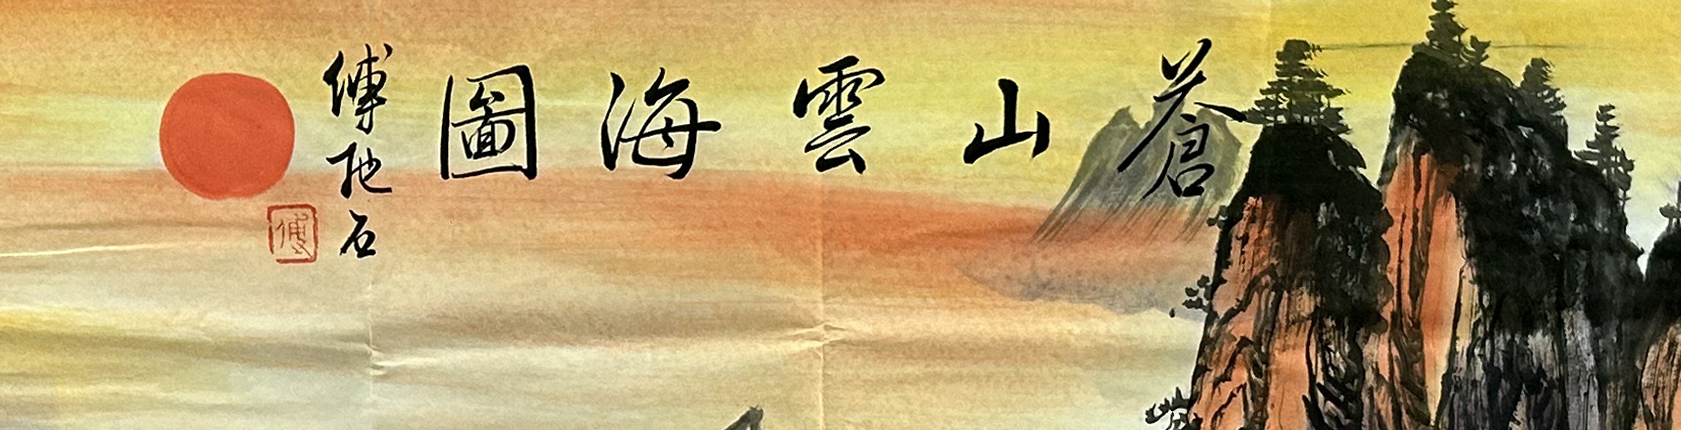 蒼山雲海圖
傅抱石
傅